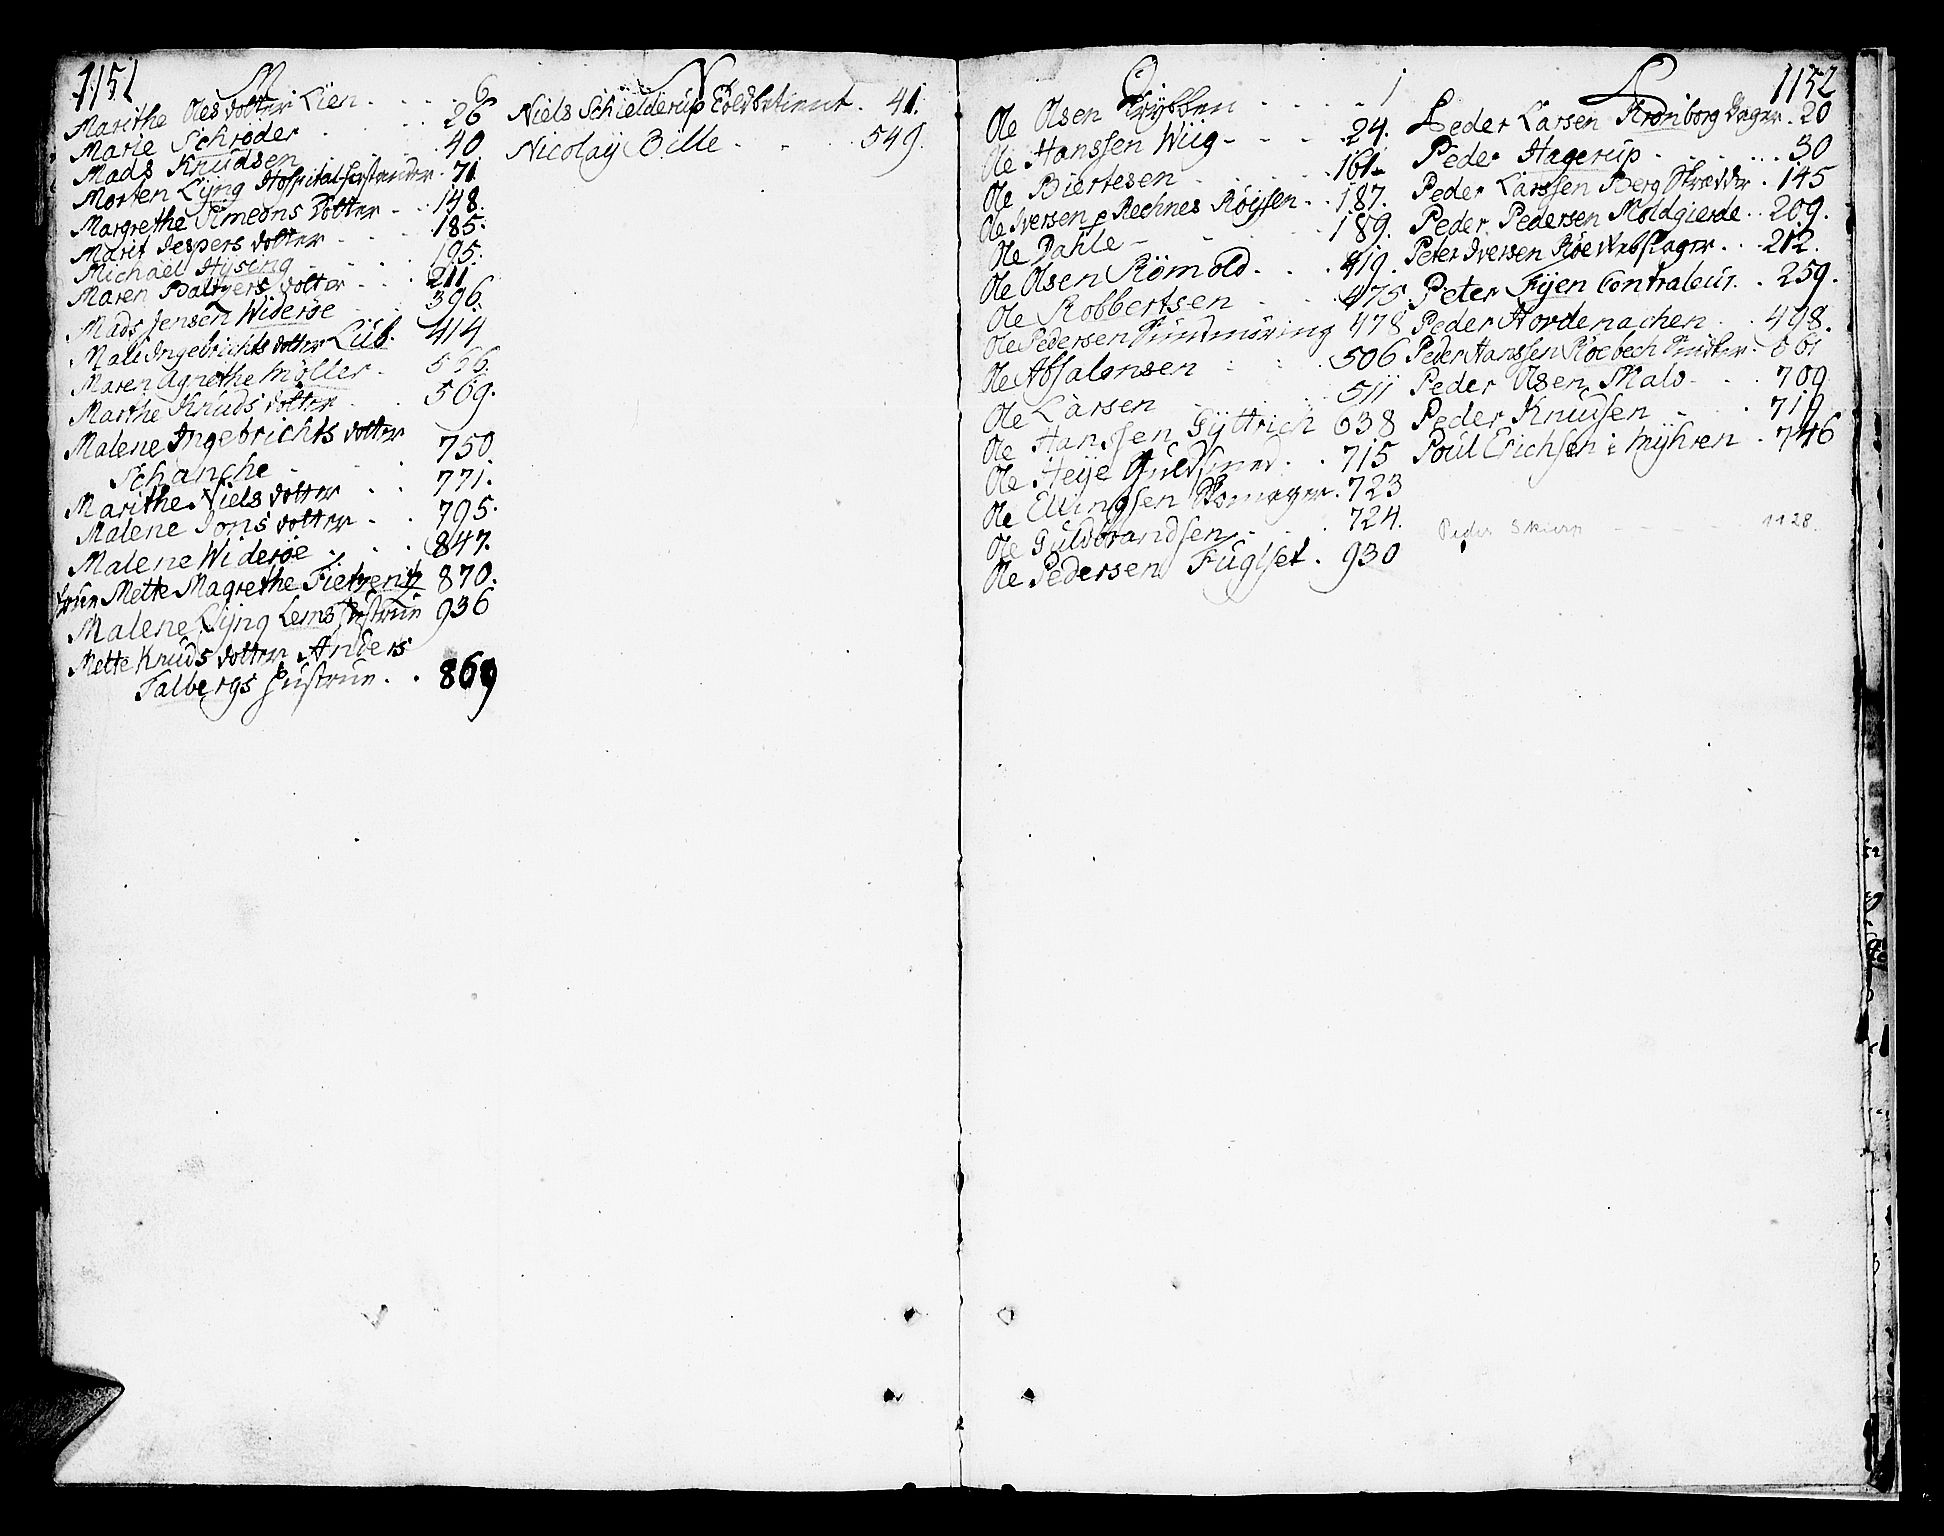 1151
M
Marithe Olesdotter Lien 6
Marie Schrøder 26
Mads Knudsen 40
Morten Lÿng Hospitalforstander 71
Margrethe Simeons Dotter 148.
Marit Jespers dotter 185.
Michael Hÿsing 195.
Maren Baltzers dotter 211.
Mads Jensen Widerøe 396.
Mali Ingebrichts dotter Lüb. 414
Maren Agnethe Møller 566.
Marthe Knuds dotter 569.
Malene Ingebrichts dotter
Schanche 750
Marithe Niels dotter 771.
Malene Jons dotter 795.
Malene Widerøe 847.
Frue Mette Magrethe Fietzentz 870.
Malene Lÿng Lems Hustrue 936
Mette Knuds dotter Anders
Talbergs Hustrue 869
N
Niels Schielderup Toldbetient 41.
Nicolaÿ Bille 549.
O
Ole Olsen Krÿbben 1
Ole Hanssen Wiig 24.
Ole Biertesen 161
Ole Iversen Rechnes Røÿsen 187.
Ole Dahle 189.
Ole Olsen Rømold 419.
Ole Robbertsen 475
Ole Pedersen Sundmøring 478
Ole Absalonsen 506
Ole Larsen 511
Ole Hanssen Gÿttrich 638
Ole Heÿe Guldsmed 715
Ole Ellingsen Skomager 723
Ole Guldbrandsen 724.
Ole Pedersen Fuglset 930
1152
P
Peder Larsen Kronborg Bager 20
Peder Hagerup 30
Peder Larssen Berg Skrædder 145
Peder Pedersen Moldgierde 209.
Peter Iversen Røe Rebslager 212.
Peter Fÿen Contraleur 259.
Peder Nordenachen 498.
Peder Hanssen Roebech 661
Peder Olsen Malo 709
Peder Knudsen 719
Poul Erichsen i Mÿhren 746
Peder 1128.